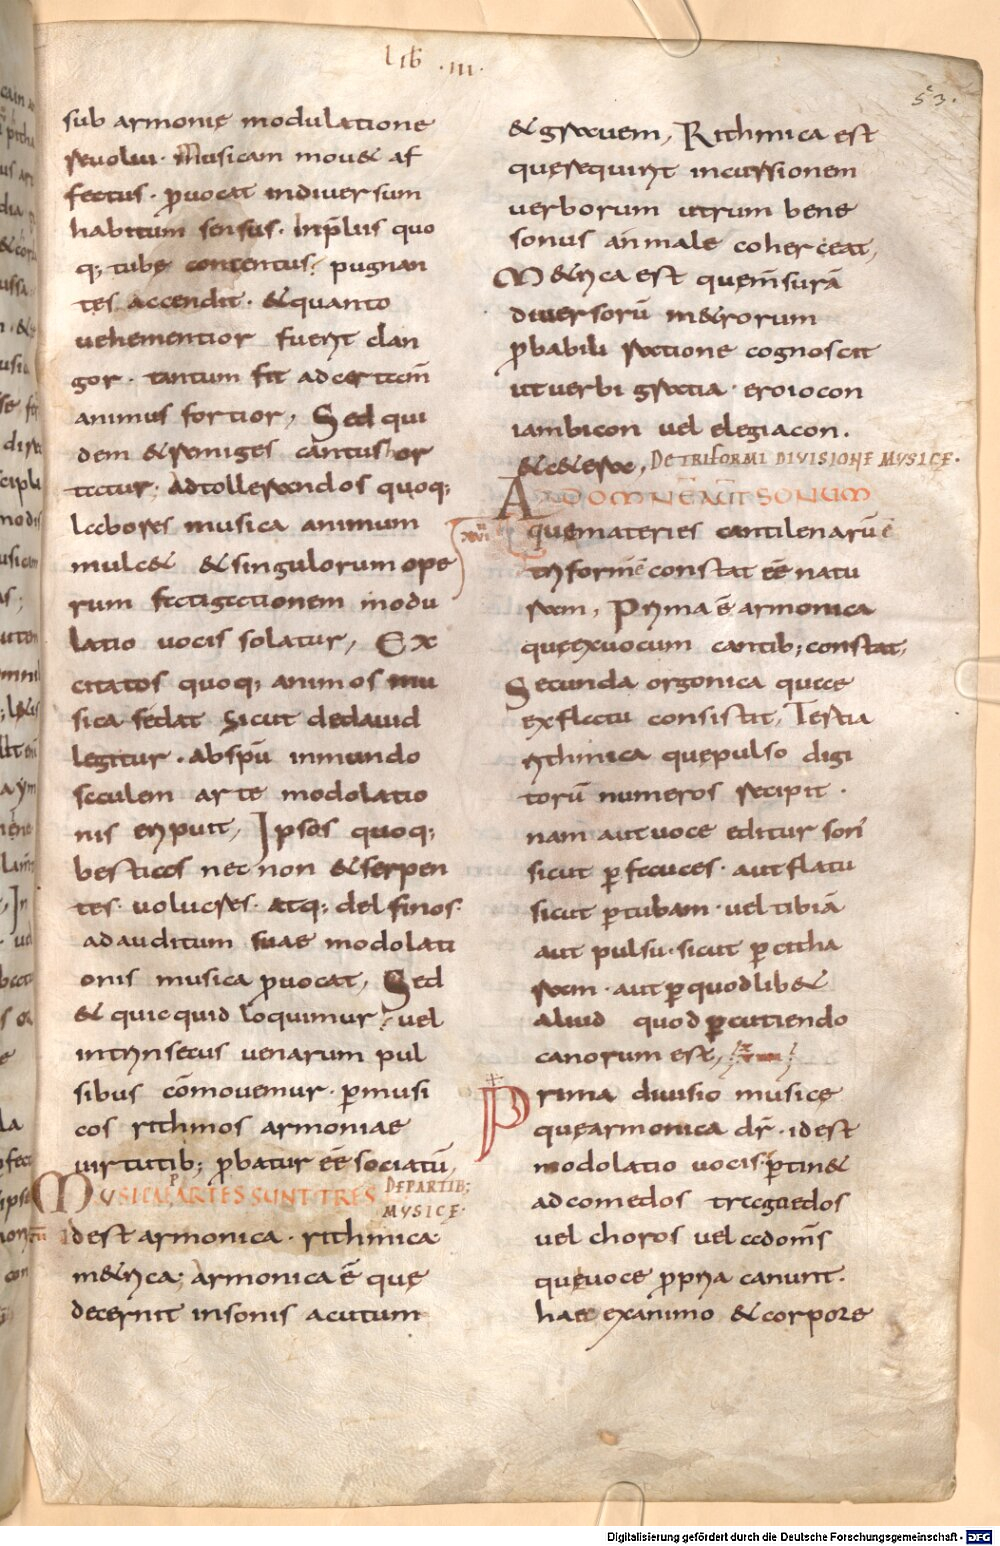 Lib̄ .III.
53.
sub armonię modulatione
reuolui. Musicam mouet af
fectus. ꝓuocat indiuersum
habitum sensus. Inp̄liis quo
q; tubę concentus; pugnan
tes accendit. et quanto
uehementior fuerit clan
gor. tantum fit ad certam̄
animus fortior, Sed qui
dem et remiges cantus hor
tatur; ad tollerandos quoq;
labores musica animum
mulcet et singulorum ope
rum fatigationem modu
latio uocis solatur, Ex
citatos quoq; animos mu
sica sedat sicut dedauid
legitur. abspū inmundo
saulem arte modolatio
nis eripuit, Ipsas quoq;
bestias nec non et serpen
tes. uolucres. atq; delfinos.
ad auditum suae modolati
onis musica ꝓuocat, Sed
et quicquid loquimur; uel
intrinsecus uenarum pul
sibus cōmouemur. ꝑmusi
cos rithmos armoniae
uirtutib; ꝓbatur eē sociatū,
MUSICAE PARTES SUNT TRES DEPARTIB;
MVSICE.
idest armonica. rithmica
metrica; armonica ē quę
decernit insonis acutum
et grauem, Rithmica est
quęrequirit incussionem
uerborum utrum bene
sonus an male cohereat,
Metrica est quęm̄surā
diuersorū metrorum
ꝓbabili ratione cognoscit
ut uerbi gratia. eroicon
iambicon uel elegiacon.
et cetera, DE TRIFORMI DIVISIONE MVSICE.
AD OMNEM AUT SONUM
xvi
quęmateries cantilenarū ē
triformē constat eē natu
ram, Prima ē armonica
quęexuocum cantib; constat,
Secunda organica quae
exflatu consistit, Tertia
rithmica quępulso digi
torū numeros recipit.
nam aut uoce editur son'
sicut ꝑ fauces. aut flatu
sicut ꝑ tubam. uel tibiā
aut pulsu. sicut ꝑ citha
ram. aut ꝑ quodlibet
aliud quod ꝑcutiendo
canorum est,
Prima diuisio musicę
quęarmonica dr̄. idest
modolatio uocis. ꝑtinet
ad comedos tragaedos
uel choros uel
quęuoce ꝓpria canunt.
haec ex animo et corpore
Digitalisierung gefördert durch die Deutsche Forschungsgemeinschaft - DFG